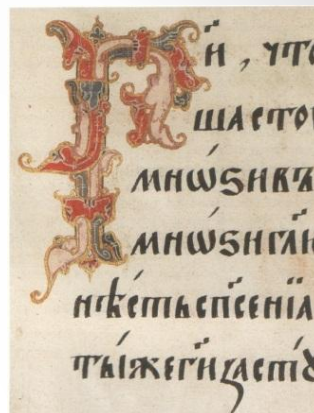 Г҃и , что
шастоу
мнѡѕивъ
мнѡѕигл҃ю
нѣстьсп҃сенїа
тыжег҃изастꙋ